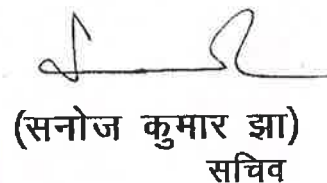 (सनोज कुमार झा)
सचिव